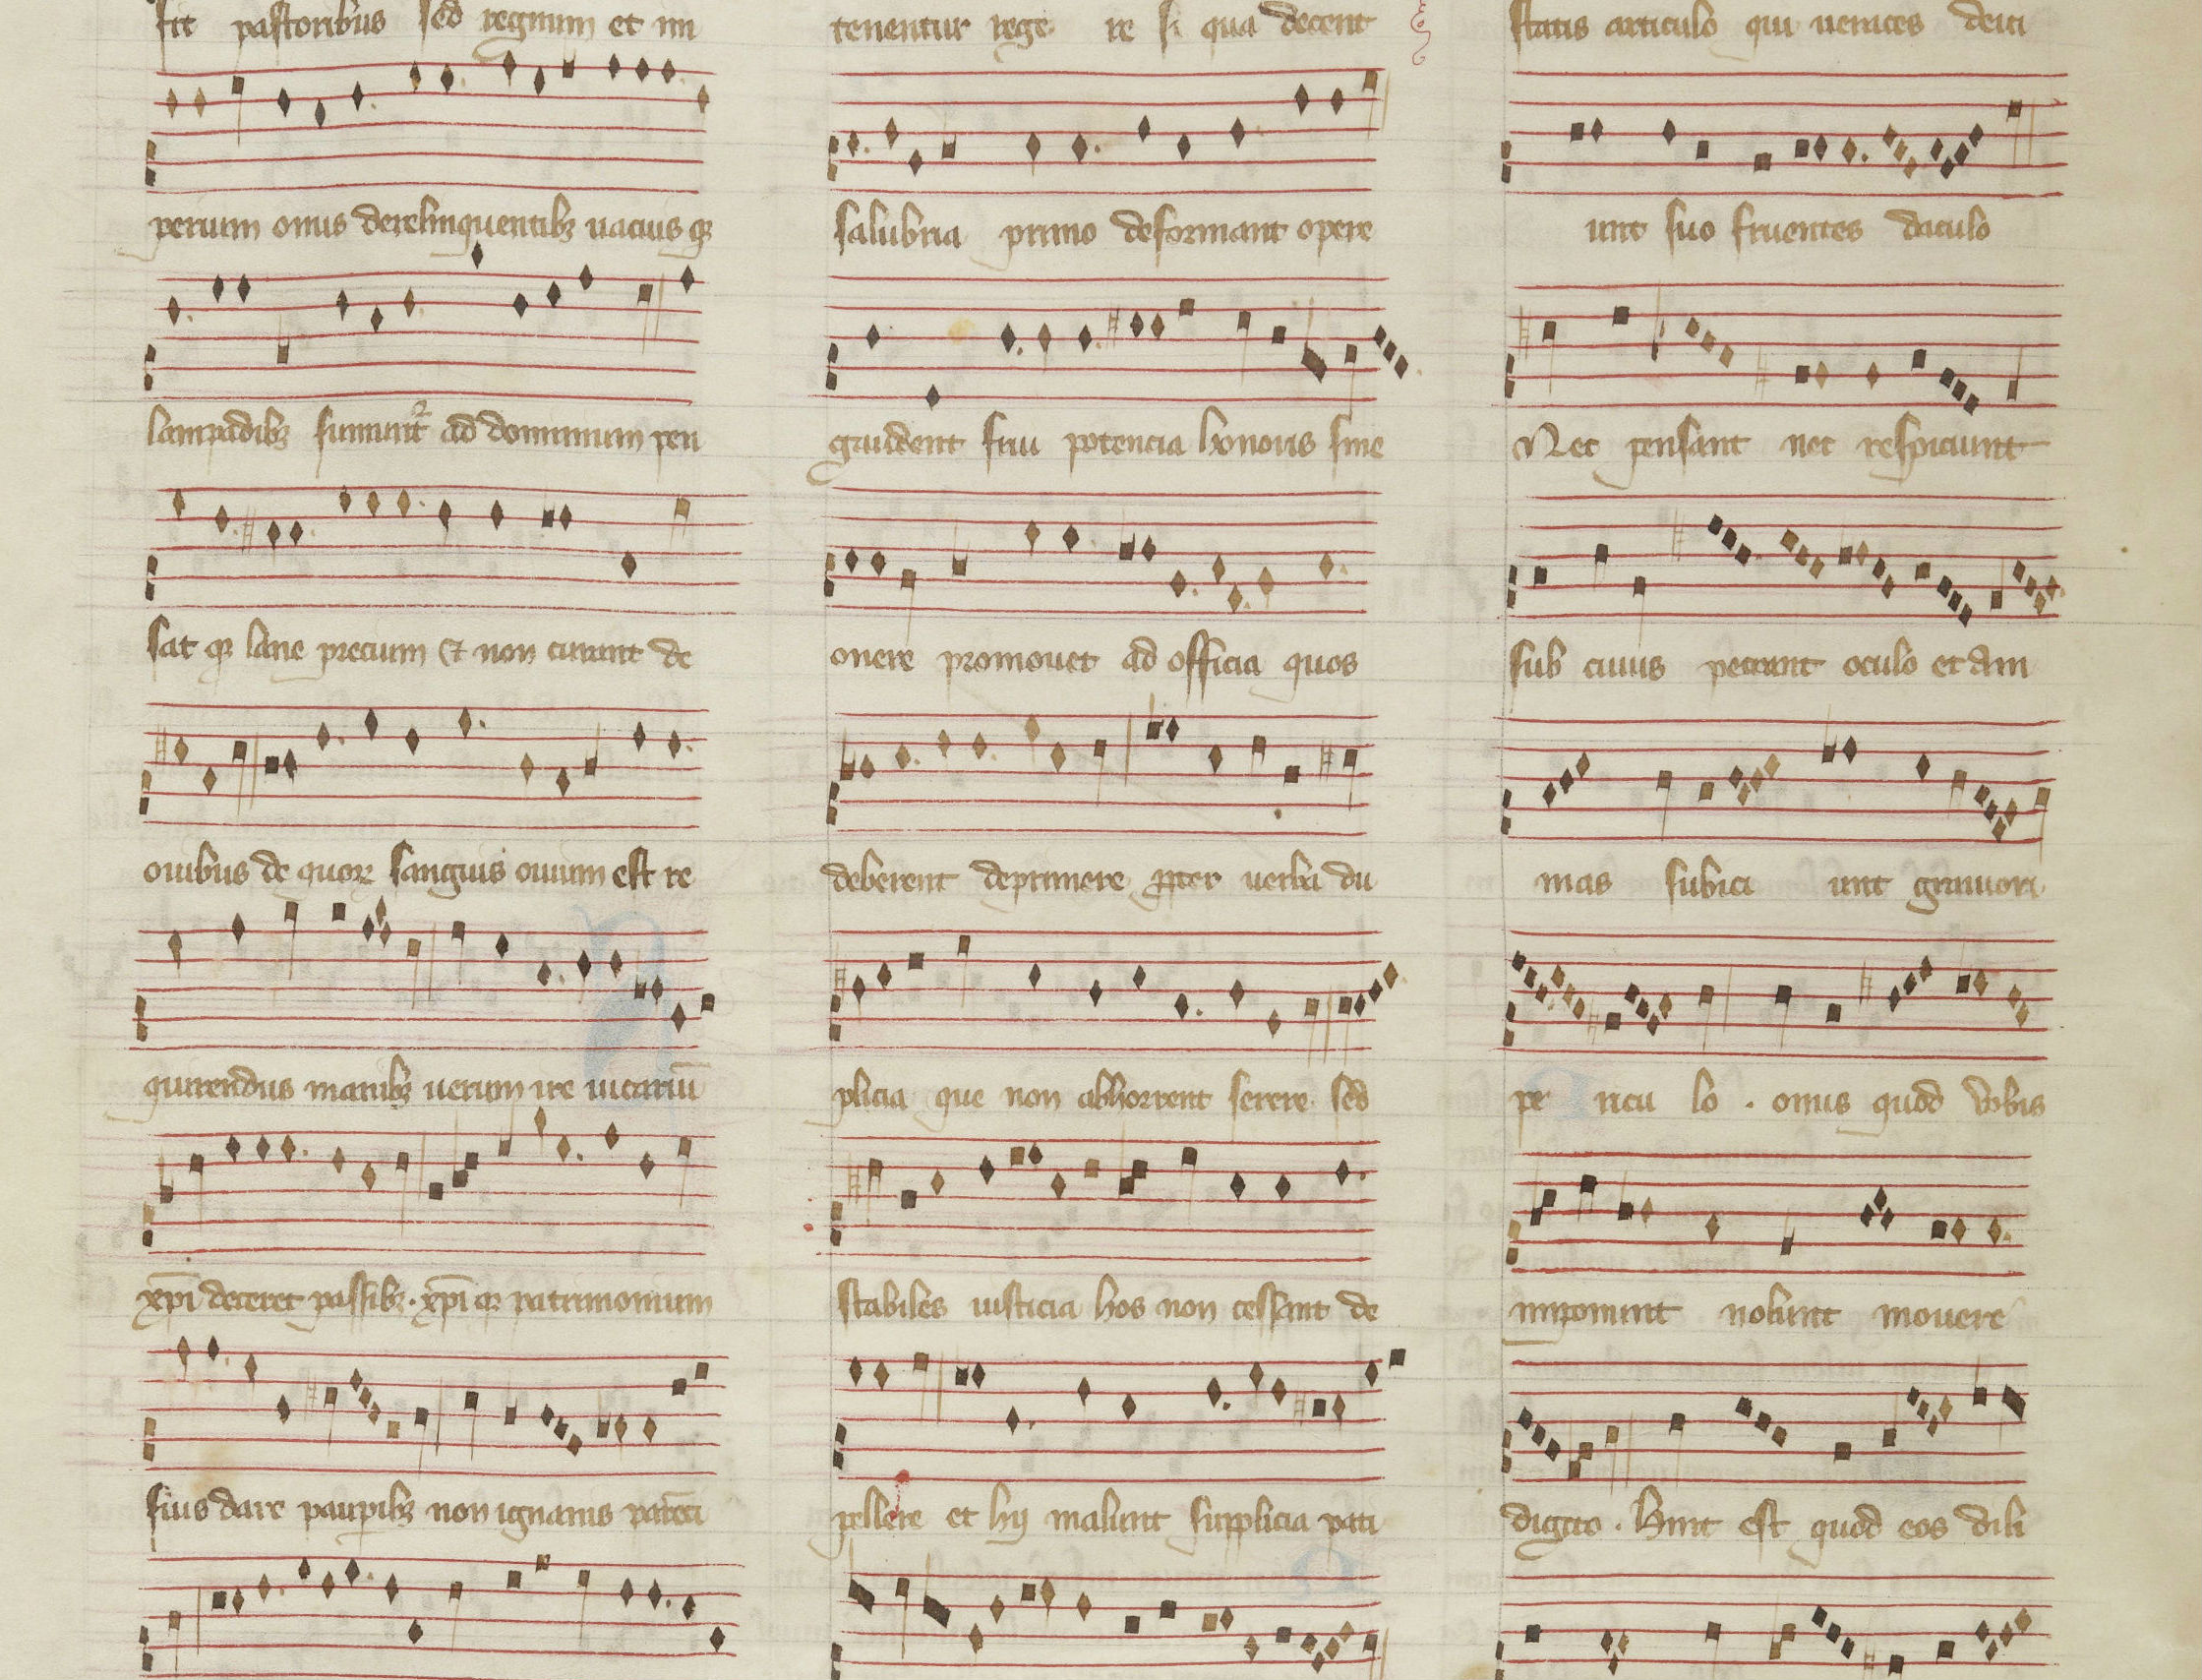 sit pastoribus sed regnum et im
perium onus derelinquentibz uacuus qꝫ
lampadibz ad dominum pen
sat qꝫ lane precium & non curant de
ouibus de quoꝝ sanguis ouium est re
quirendus manibz uerum ire uicariū
xp̄i deceret passibz. xp̄i qꝫ patrimonium
suis dare paupibz non ignauis
tenentur rege re si qua decent
salubria primo deformant opere
gaudent frui potencia honoris sine
onere promouet ad officia quos
deberent deprimere ꝓpter uerba du
plicia que non abhorrent serere sed
stabiles iusticia hos non cessant de
pellere et hij malunt supplicia pati
statis articulo qui
unt suo fruentes baculo
Nec pensant nec respiciunt
sub cuius peccant oculo et am
mas subici unt grauiori
pe ricu lo . onus quod vobis
imponunt nolunt mouere
digito . Hinc est quod eos dili